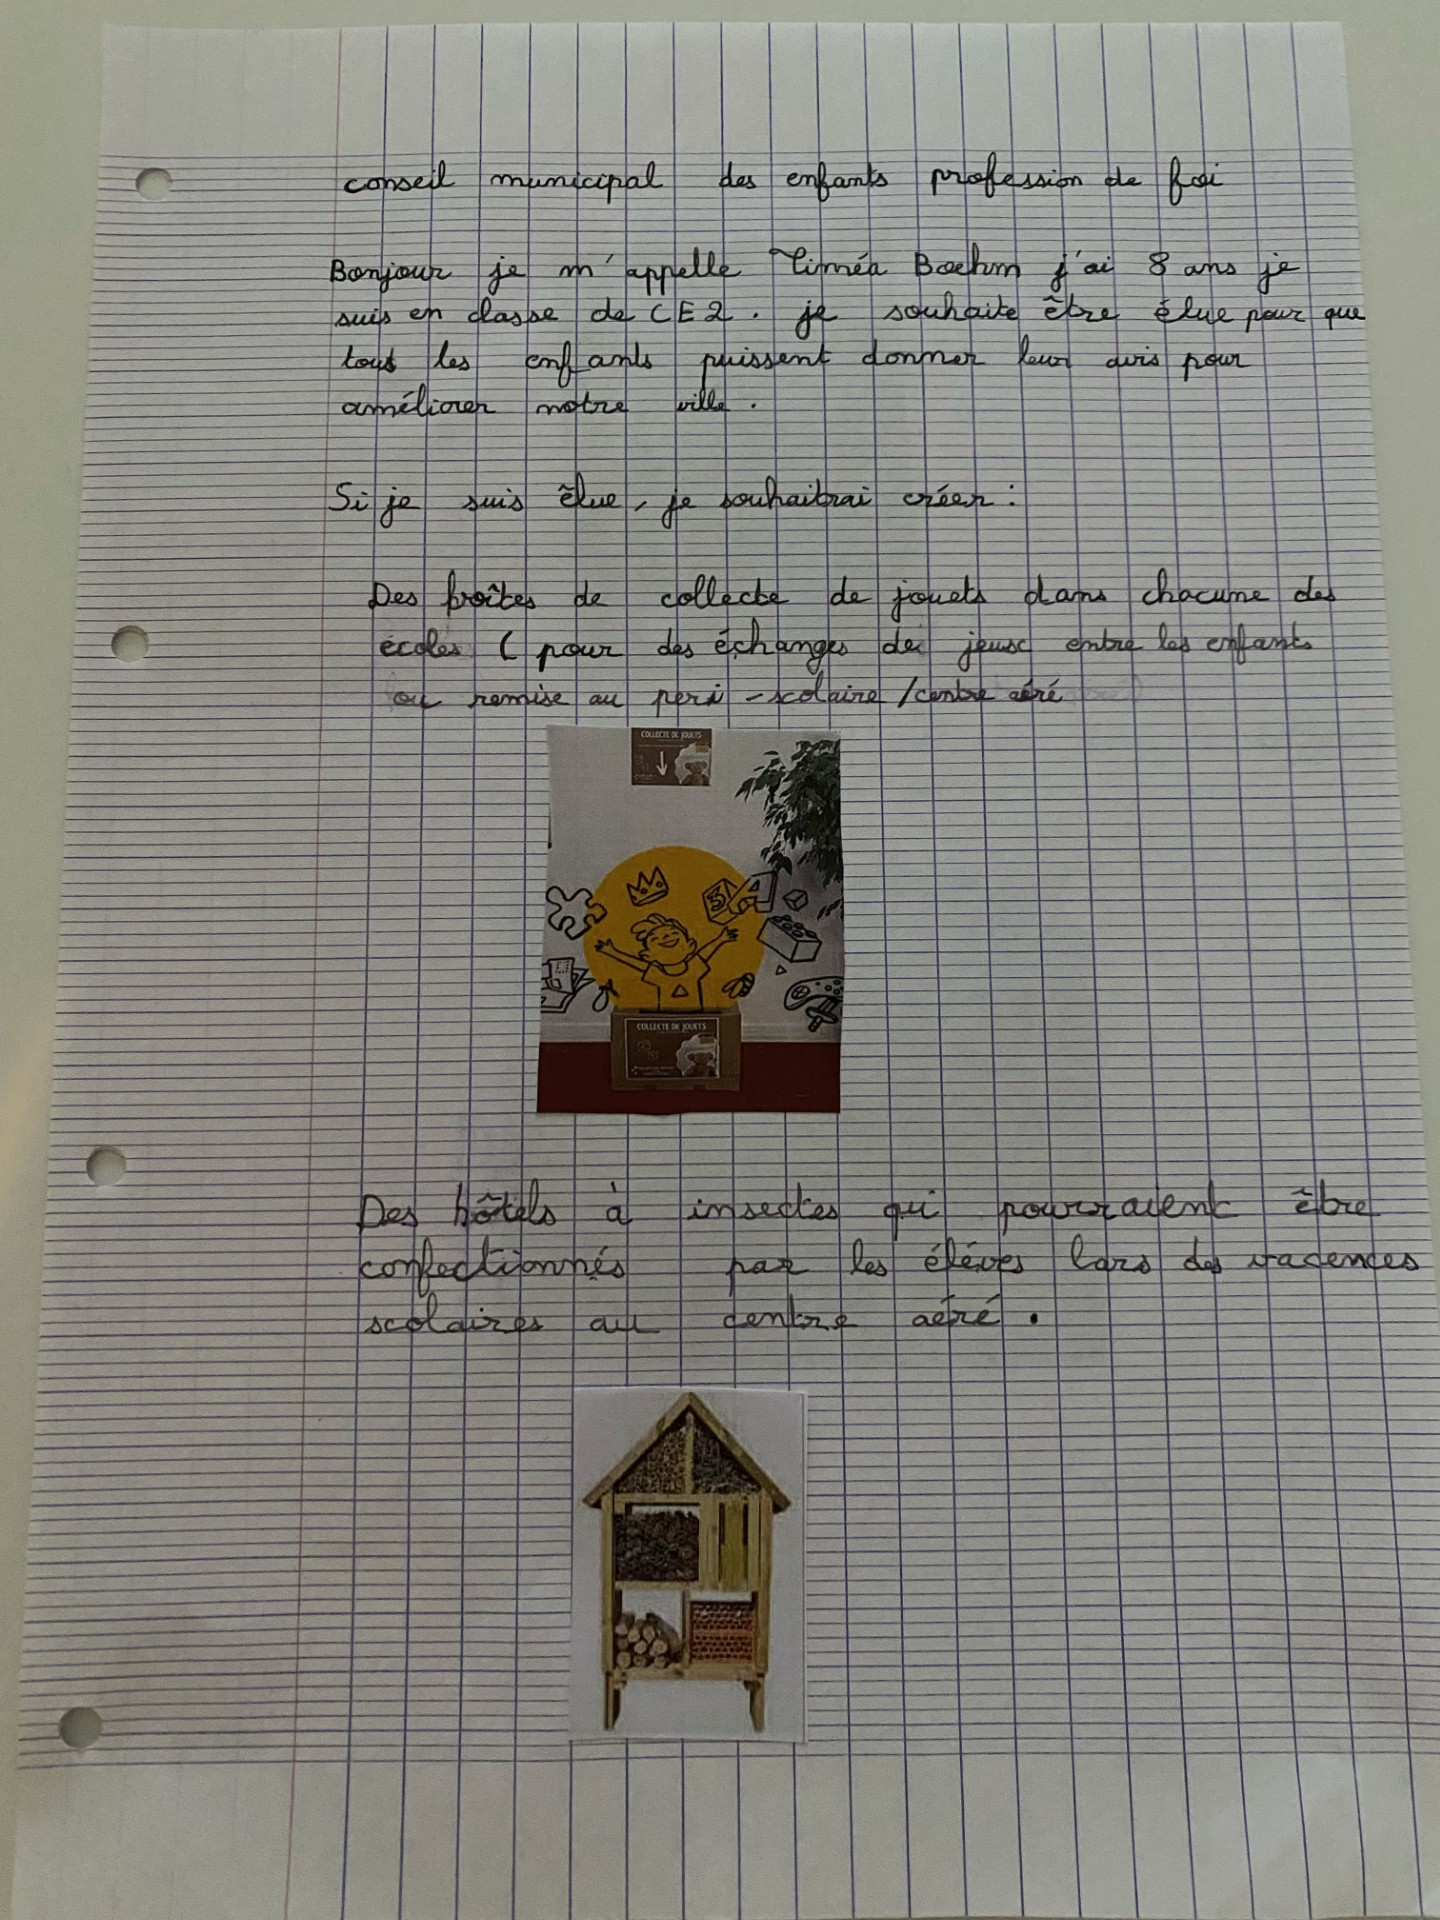 conseil municipal des enfants profession de foi
Bonjour je m'appelle Timéa Boehm j'ai 8 ans je
suis en classe de CE2. je souhaite être élue pour que
tous les enfants puissent donner leur avis pour
améliorer notre ville.
Si je suis élue, je souhaitrai créer :
Des boîtes de collecte de jouets dans chacune des
écoles ( pour des échanges de jeux entre les enfants
ou remise au peri-scolaire /centre aéré
COLLECTE DE JOUETS
3 A
COLLECTE DE JOUETS
Des hôtels à insectes qui pourraient être
confectionnés par les éléves lors des vacences
scolaires au centre aéré.